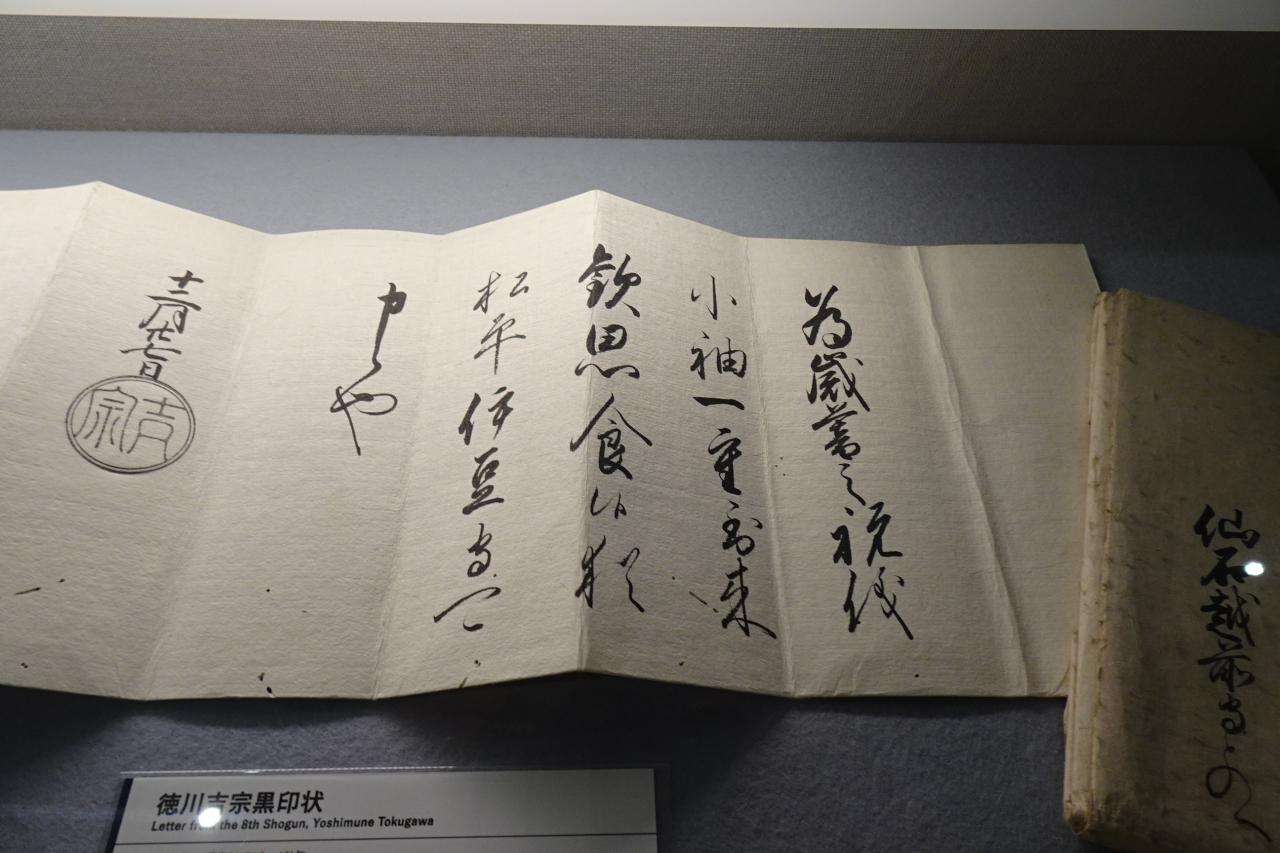 仙石越前守とのへ
為歳暮之祝儀
小袖一重到来
歓思食候猶
松平伊豆守可
申候也
十二月廿七日
吉宗
徳川吉宗黒印状
Letter from the 8th Shogun, Yoshimune Tokugawa